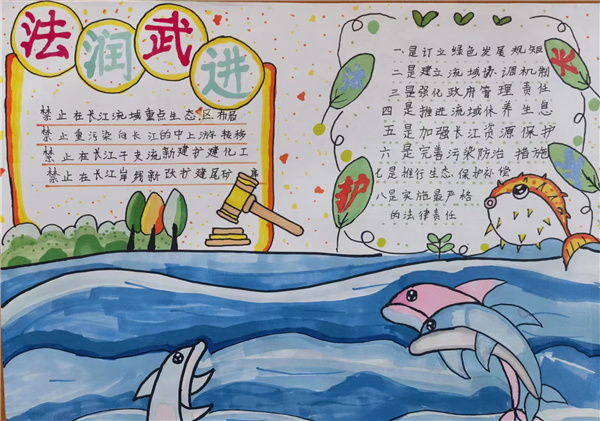 法润武进
禁止在长江流域重点生态区布局
禁止重污染向长江的中上游转移
禁止在长江干支流新建扩建化工
禁止在长江岸线新改扩建尾矿库
一是订立绿色发展规矩
二是建立流域协调机制
三是强化政府管理责任
四是推进流域休养生息
五是加强长江资源保护
六是完善污染防治措施
七是推行生态保护补偿
八是实施最严格
的法律责任
法
长
护